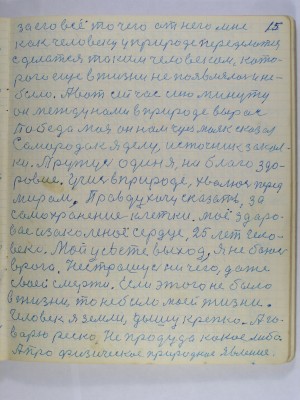 15
за его всё то чего от него мне
как человеку у природе передается
сделается таким человеком, кото-
рого еще в жизни не появлялось не
было. А вот сей час сию минуту
он между нами в природе вырос
Победа моя он нам чуть маяк сказал
Самородок я делу, источник закал-
ки. Я тружусь один я, на благо здо-
ровие. Учусь в природе, хвалюсь перед
миром, Правду хочу сказать, за
само хранение клетки. моё здоро-
вое изаколеное сердце, 25 лет Чело-
века. Мой у свете выход, Я не боюсь
врага, Не страшусь ни чего, даже
своей смерти, Если этого не было
в жизни, то не было моей жизни.
Человек я земли, дышу крепко. А го-
ворю резко, Не про чуда какое либо
А про физическое природное явление.